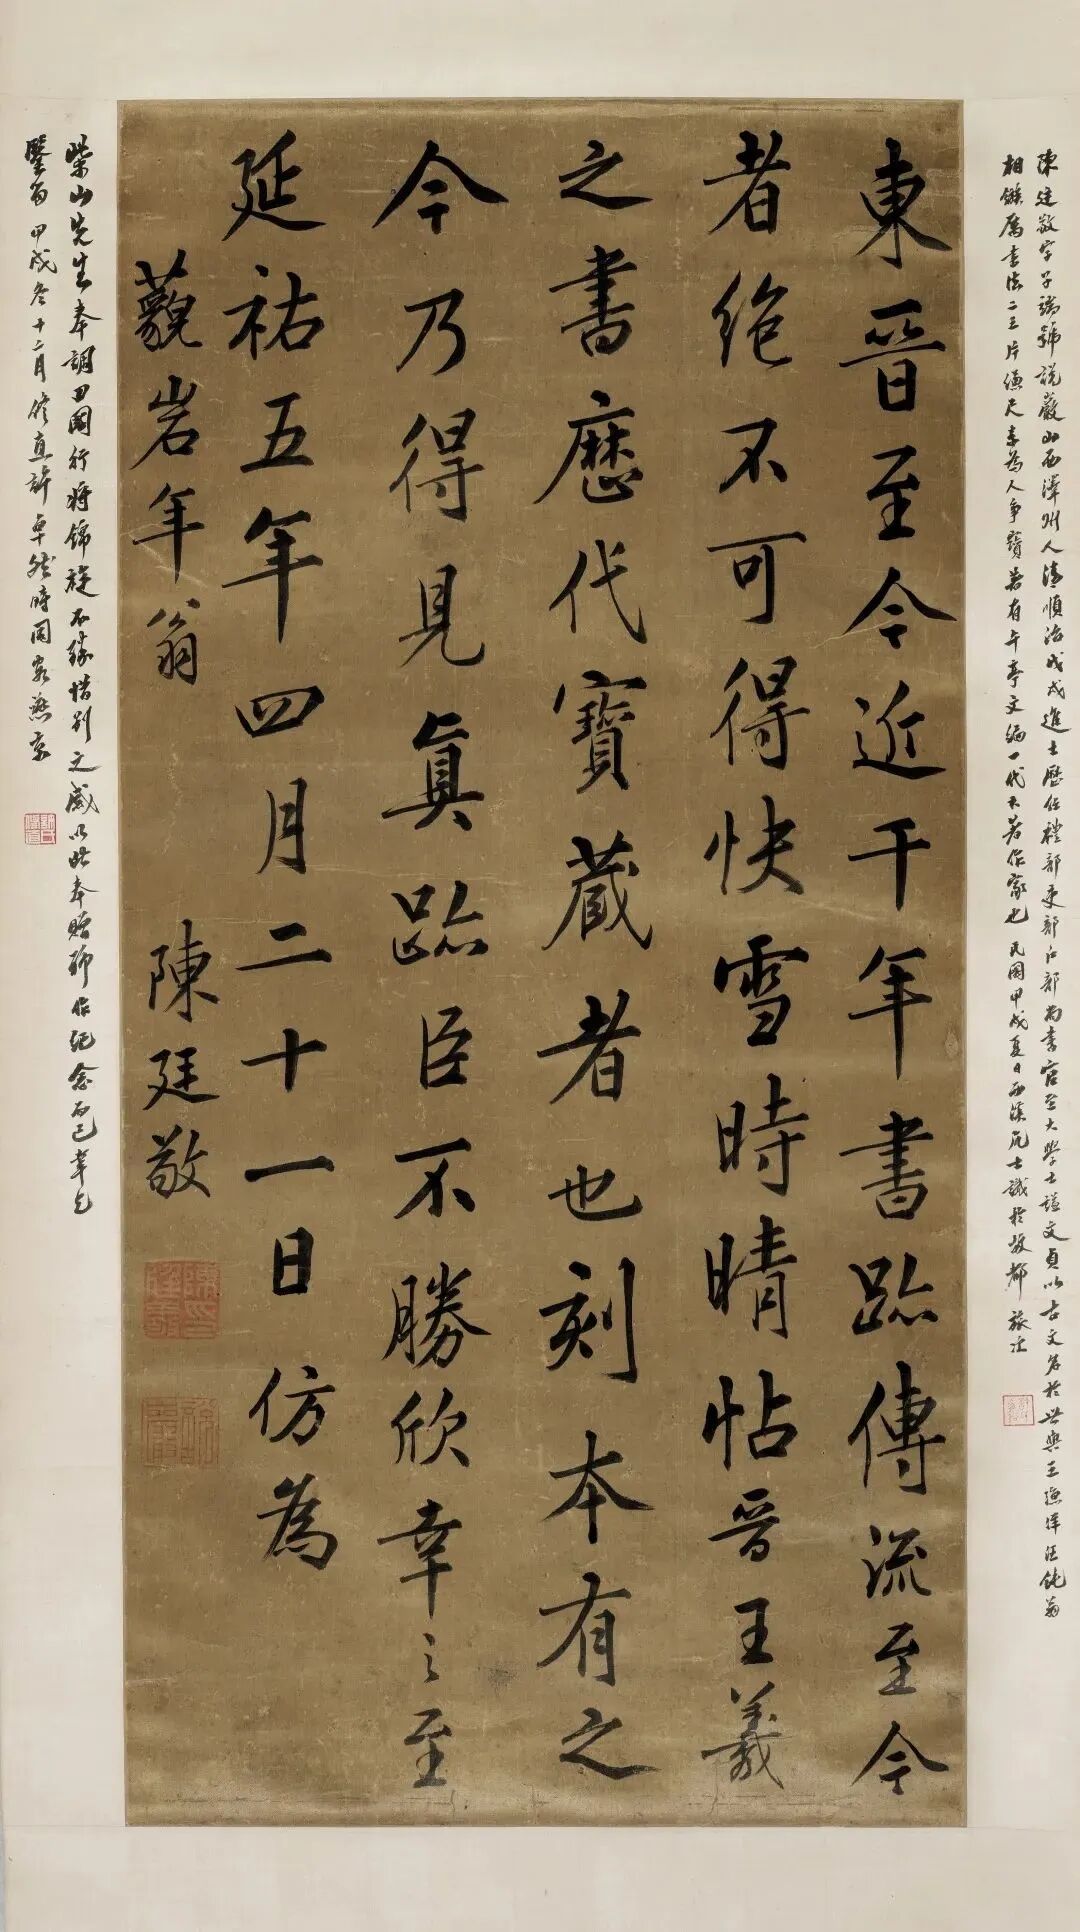 陳廷敬字子端號說巖山西澤州人清順治戊戌進士歷任禮部吏部戶部尚書官至大學士謚文貞以古文名於世與王漁洋汪鈍翁
相鏃厲書法二王片縑尺素為人爭寶著有午亭文編一代大著作家也民國甲戌夏日西溪居士識於故都旅次
東晉至今近千年書跡傳流至今
者絕不可得快雪時晴帖晉王羲
之書歷代寶藏者也刻本有之
今乃得見真跡臣不勝欣幸之至
延祐五年四月二十一日仿為
藐岩年翁
陳廷敬
柴山先生奉調回國行將錦旋不勝惜別之感以此奉贈聊作紀念而已幸乞
鑒而甲戌冬十二月修直許卓然時同客燕京